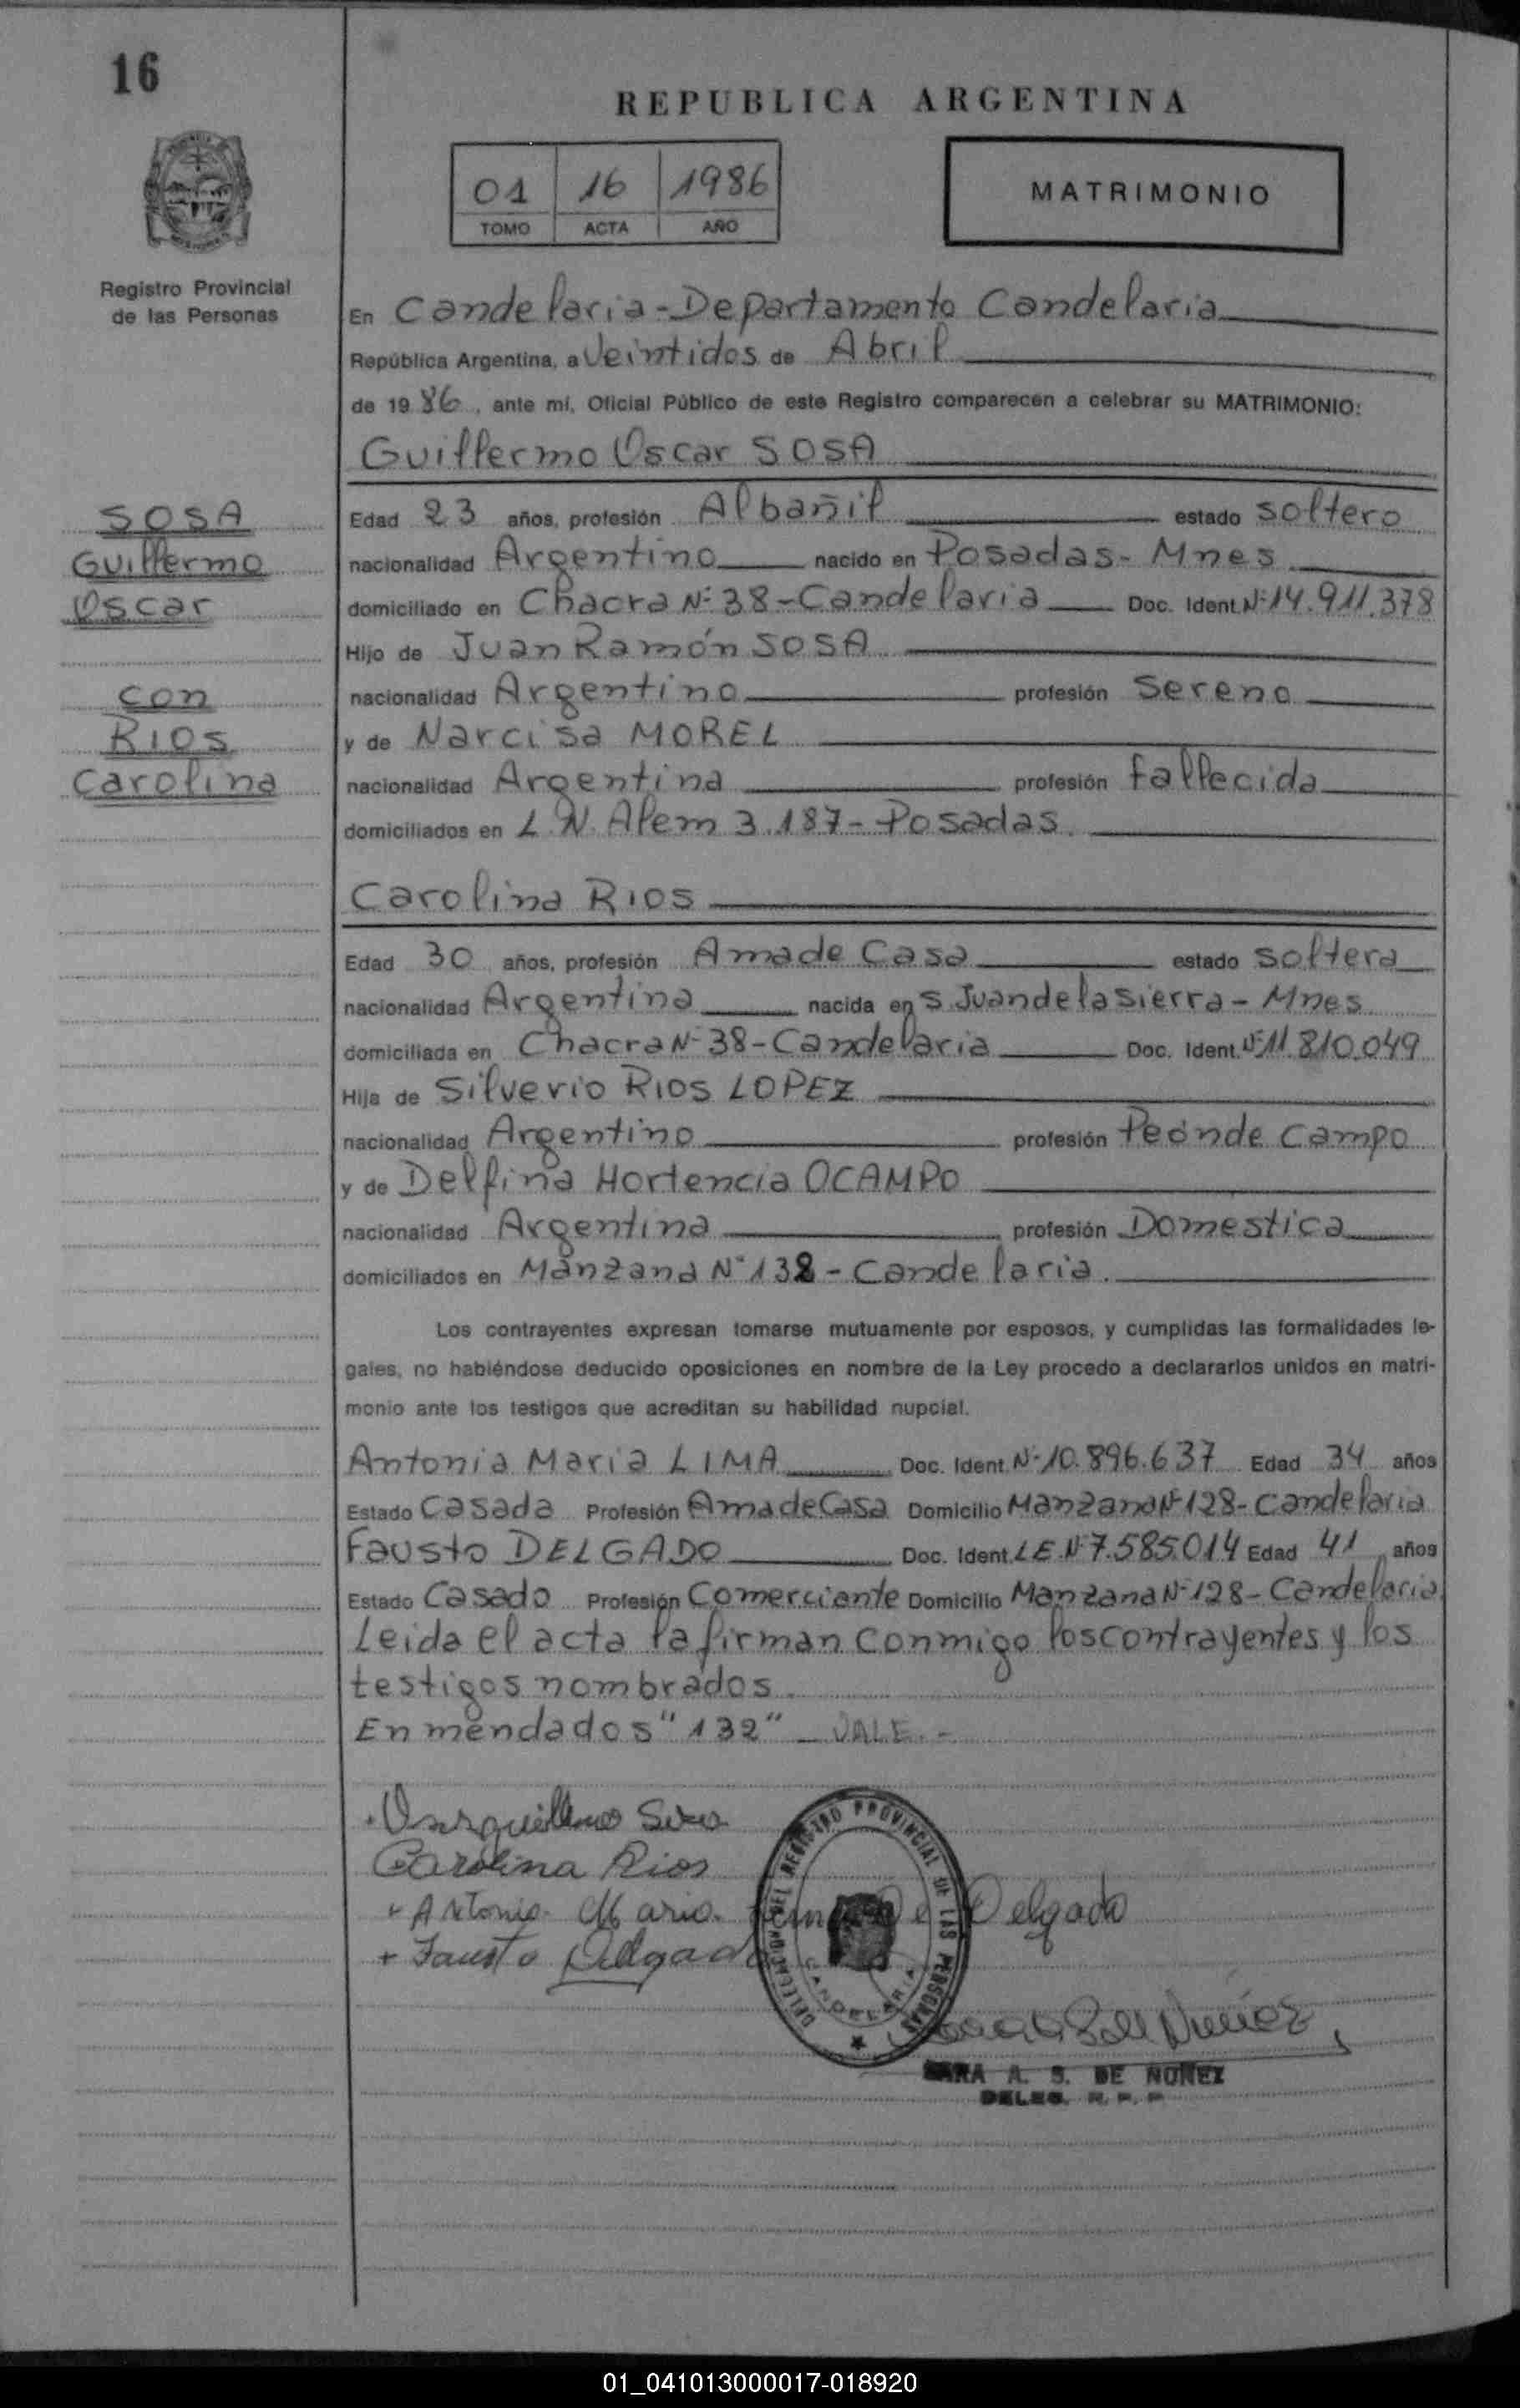 16
REPUBLICA ARGENTINA
01 16 1986
TOMO ACTA AÑO
MATRIMONIO
Registro Provincial
de las Personas
En Candelaria - Departamento Candelaria
República Argentina, a Veintidos de Abril
de 1986, ante mí, Oficial Público de este Registro comparecen a celebrar su MATRIMONIO:
Guillermo Oscar SOSA
SOSA
Guillermo
Oscar
con
RIOS
Carolina
Edad 23 años, profesión Albañil estado soltero
nacionalidad Argentino nacido en Posadas - Mnes
domiciliado en Chacra Nº 38 - Candelaria Doc. Ident. Nº 14.911.378
Hijo de Juan Ramón SOSA
nacionalidad Argentino profesión Sereno
y de Narcisa MOREL
nacionalidad Argentina profesión fallecida
domiciliados en L. N. Alem 3.187 - Posadas.
Carolina RIOS
Edad 30 años, profesión Ama de Casa estado soltera
nacionalidad Argentina nacida en S. Juan de la Sierra - Mnes
domiciliada en Chacra Nº 38 - Candelaria Doc. Ident. Nº 11.810.049
Hija de Silverio RIOS LOPEZ
nacionalidad Argentino profesión Peón de Campo
y de Delfina Hortencia OCAMPO
nacionalidad Argentina profesión Domestica
domiciliados en Manzana Nº 132 - Candelaria.
Los contrayentes expresan tomarse mutuamente por esposos, y cumplidas las formalidades le-
gales, no habiéndose deducido oposiciones en nombre de la Ley procedo a declararlos unidos en matri-
monio ante los testigos que acreditan su habilidad nupcial.
Antonia Maria LIMA Doc. Ident. Nº 10.896.637 Edad 34 años
Estado Casada Profesión Ama de Casa Domicilio Manzana Nº 128 - Candelaria
Fausto DELGADO Doc. Ident. L.E. Nº 7.585.014 Edad 41 años
Estado Casado Profesión Comerciante Domicilio Manzana Nº 128 - Candelaria.
Leida el acta la firman conmigo los contrayentes y los
testigos nombrados.
Enmendados "132" - VALE. -
Carolina Rios
Antonia Maria de Delgado
Fausto Delgado
DELEGACION DEL REGISTRO PROVINCIAL DE LAS PERSONAS
CANDELARIA
SARA A. S. DE NUÑEZ
DELEG. R. P. P
01_041013000017-018920